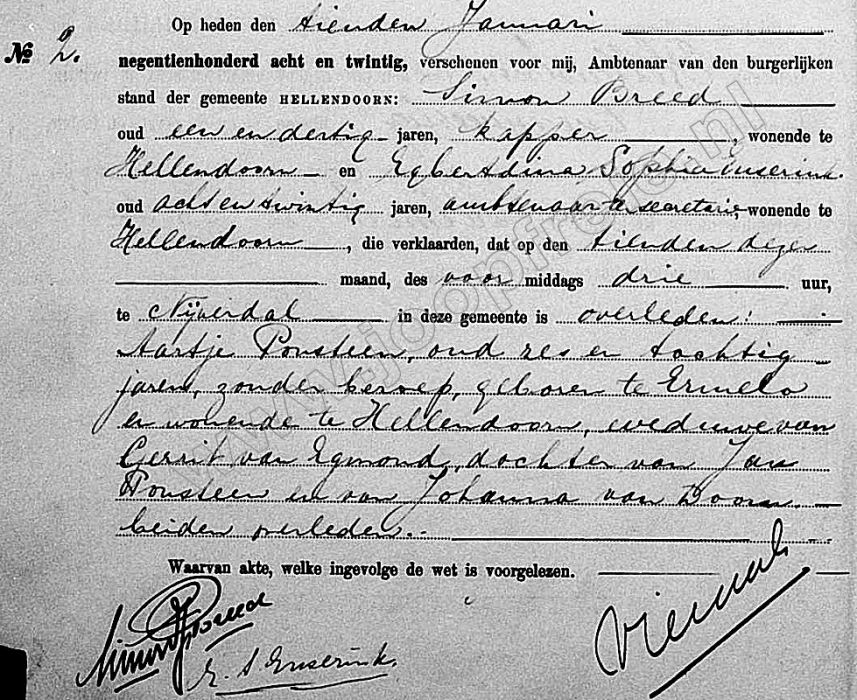 Op heden den tienden Januari
№ 2. negentienhonderd acht en twintig, verschenen voor mij, Ambtenaar van den burgerlijken
stand der gemeente HELLENDOORN: Simon Breed
oud een en dertig jaren, kapper, wonende te
Hellendoorn en Egberdina Sophia Enserink
oud acht en twintig jaren, ambtenaar ter secretarie, wonende te
Hellendoorn, die verklaarden, dat op den tienden dezer
maand, des voor middags drie uur,
te Nijverdal in deze gemeente is overleden:
Aartje Ponsteen, oud zes en tachtig
jaren, zonder beroep, geboren te Ermelo
en wonende te Hellendoorn, weduwe van
Gerrit van Egmond, dochter van Jan
Ponsteen en van Johanna van Doorn.
beiden overleden..
Waarvan akte, welke ingevolge de wet is voorgelezen.
Simon Breed
E. S Enserink.
www.joopfrero.nl